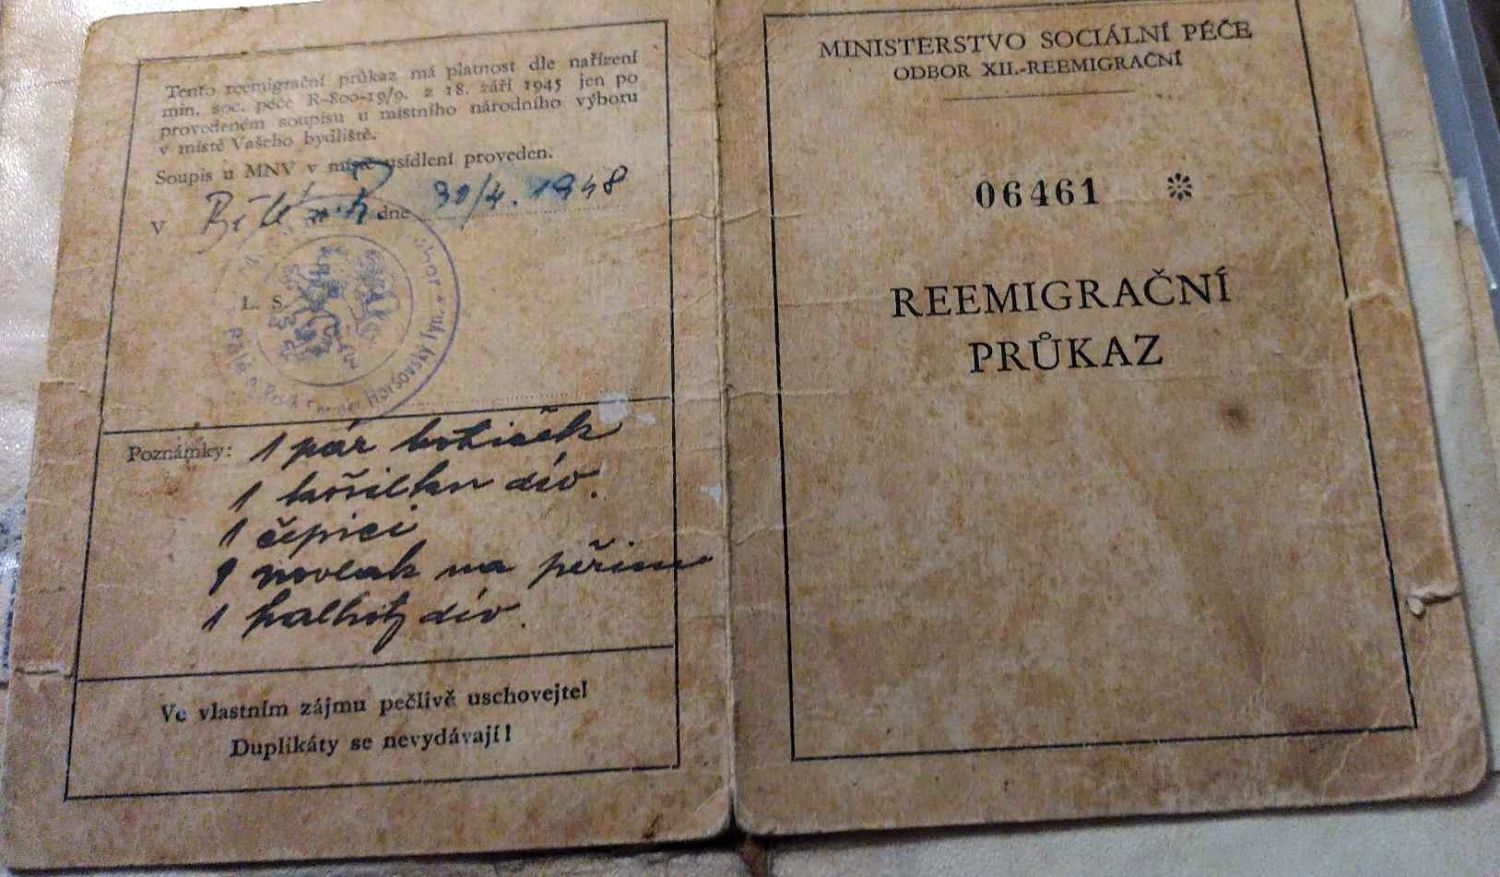 Tento reemigrační průkaz má platnost dle nařízení
min. soc. péče R-800-19/9. z 18. září 1945 jen po
provedeném soupisu u místního národního výboru
v místě Vašeho bydliště.
Soupis u MNV v místě usídlení proveden.
V dne 30/4. 1948
L. S.
Horšovský Týn.
Poznámky: 1 pár botiček
1 košilku dív.
1 čepici
1 povlak na peřinu
1 kalhoty dív.
Ve vlastním zájmu pečlivě uschovejte!
Duplikáty se nevydávají!
MINISTERSTVO SOCIÁLNÍ PÉČE
ODBOR XII.-REEMIGRAČNÍ
06461 *
REEMIGRAČNÍ
PRŮKAZ